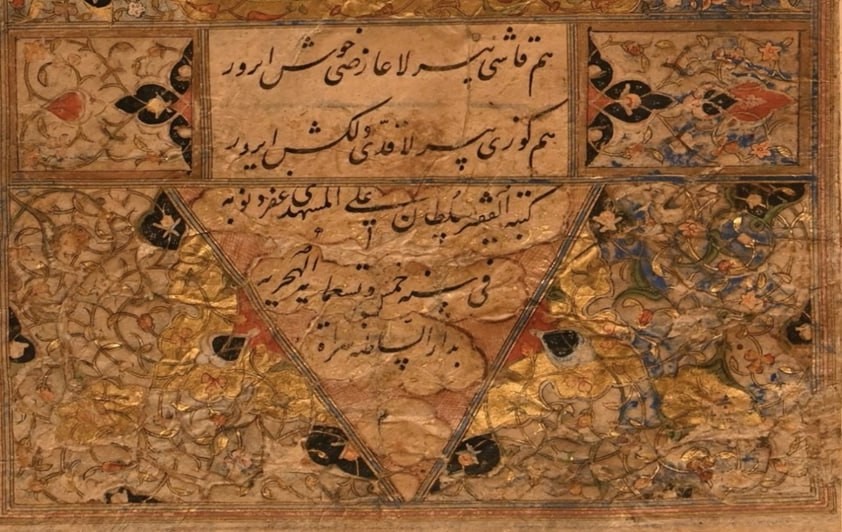 هم قاشی بیر لا عارضی خوش ایرور
هم کوزی بیر لا قدی دلکش ایرور
کتبه الفقیر سلطان علی المشهدی غفر ذنوبه
فی سنه خمس و تسعمایه الهجریه
بدار السلطنه هراة